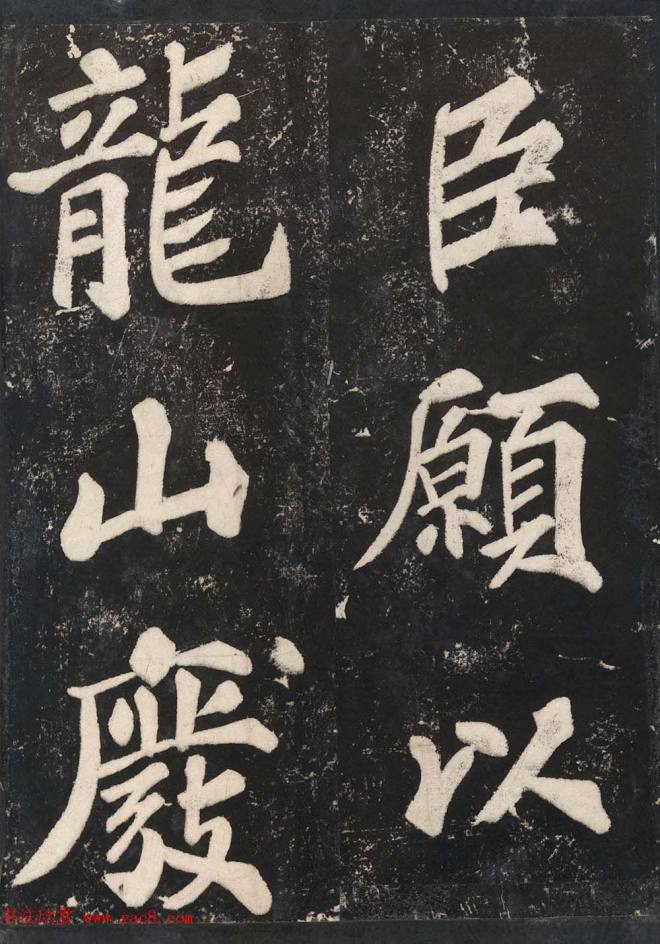 臣願以
龍山廢
书法欣赏 www.yac8.com